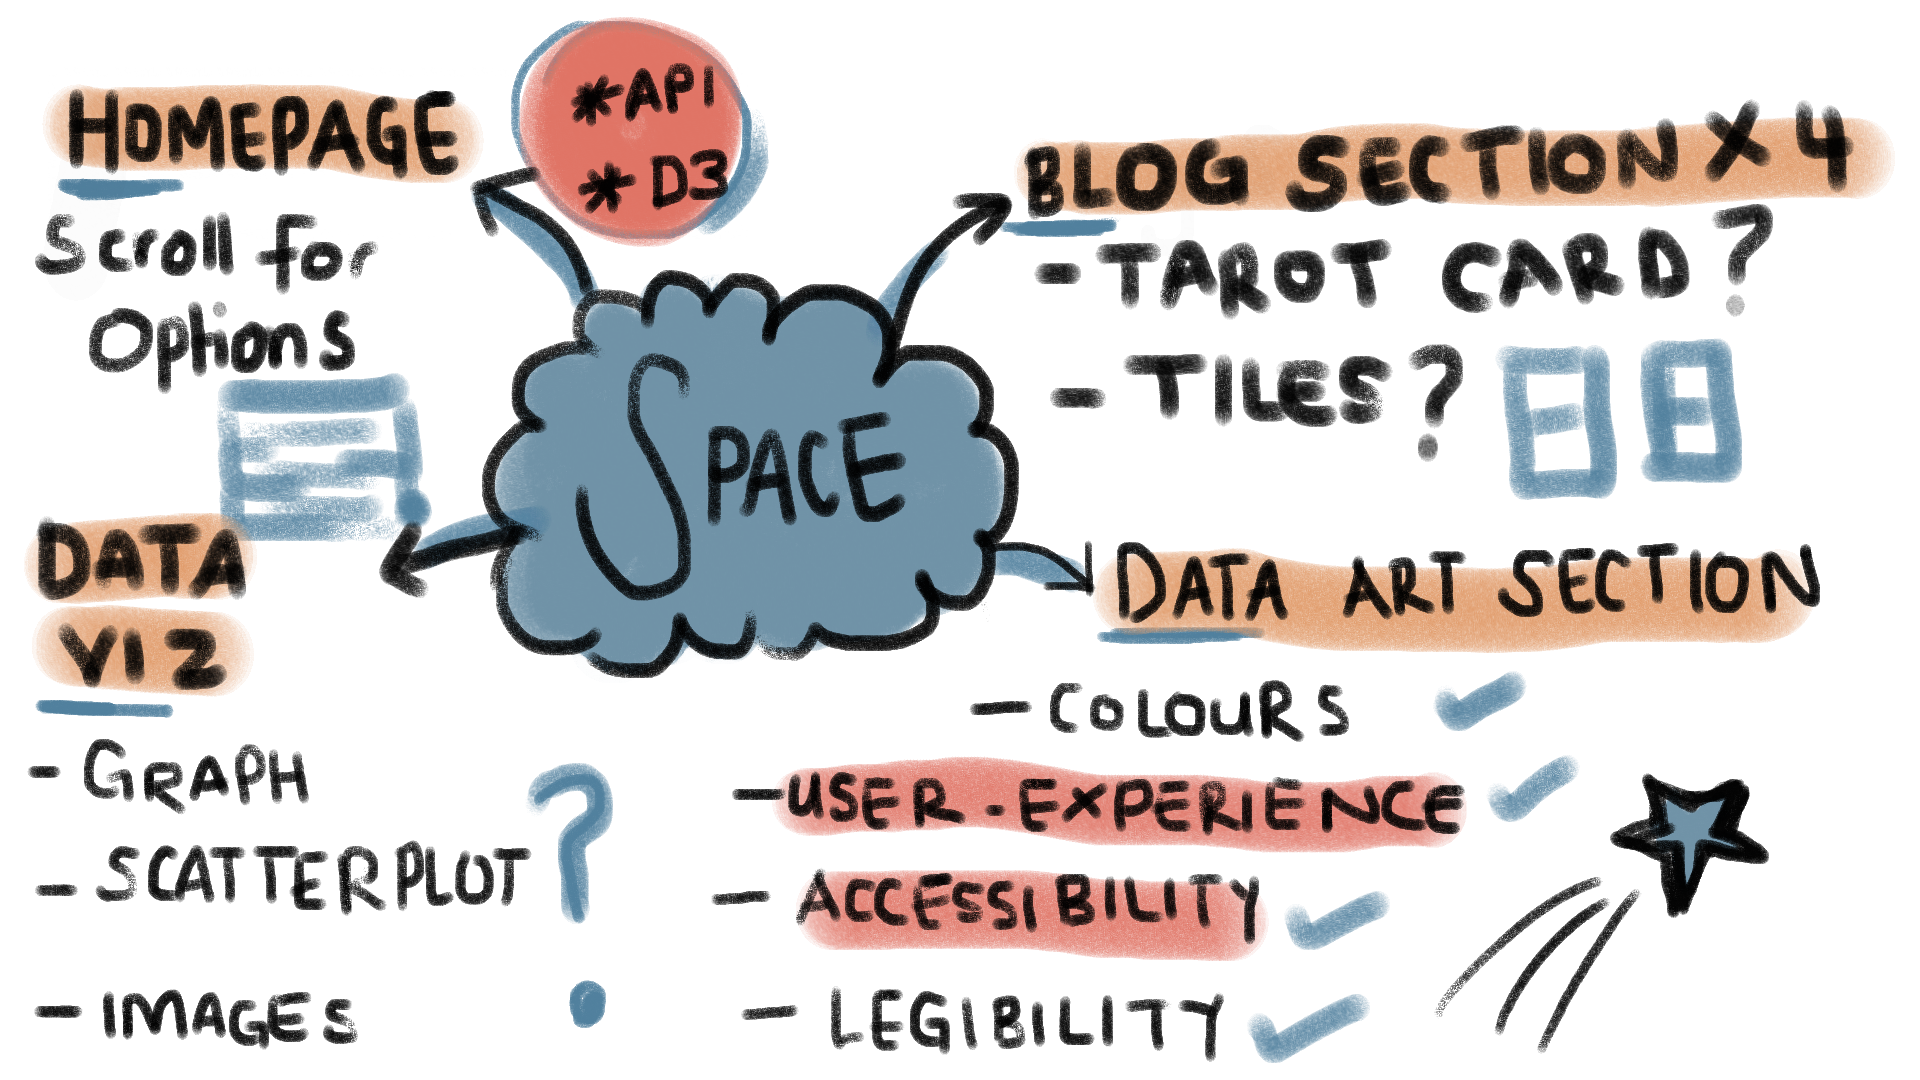 *API
* D3
HOMEPAGE
Scroll for
Options
SPACE
BLOG SECTION X 4
- TAROT CARD ?
- TILES ?
DATA
VIZ
- GRAPH
- SCATTERPLOT
- IMAGES
?
DATA ART SECTION
- COLOURS ✓
- USER - EXPERIENCE ✓
- ACCESSIBILITY ✓
- LEGIBILITY ✓